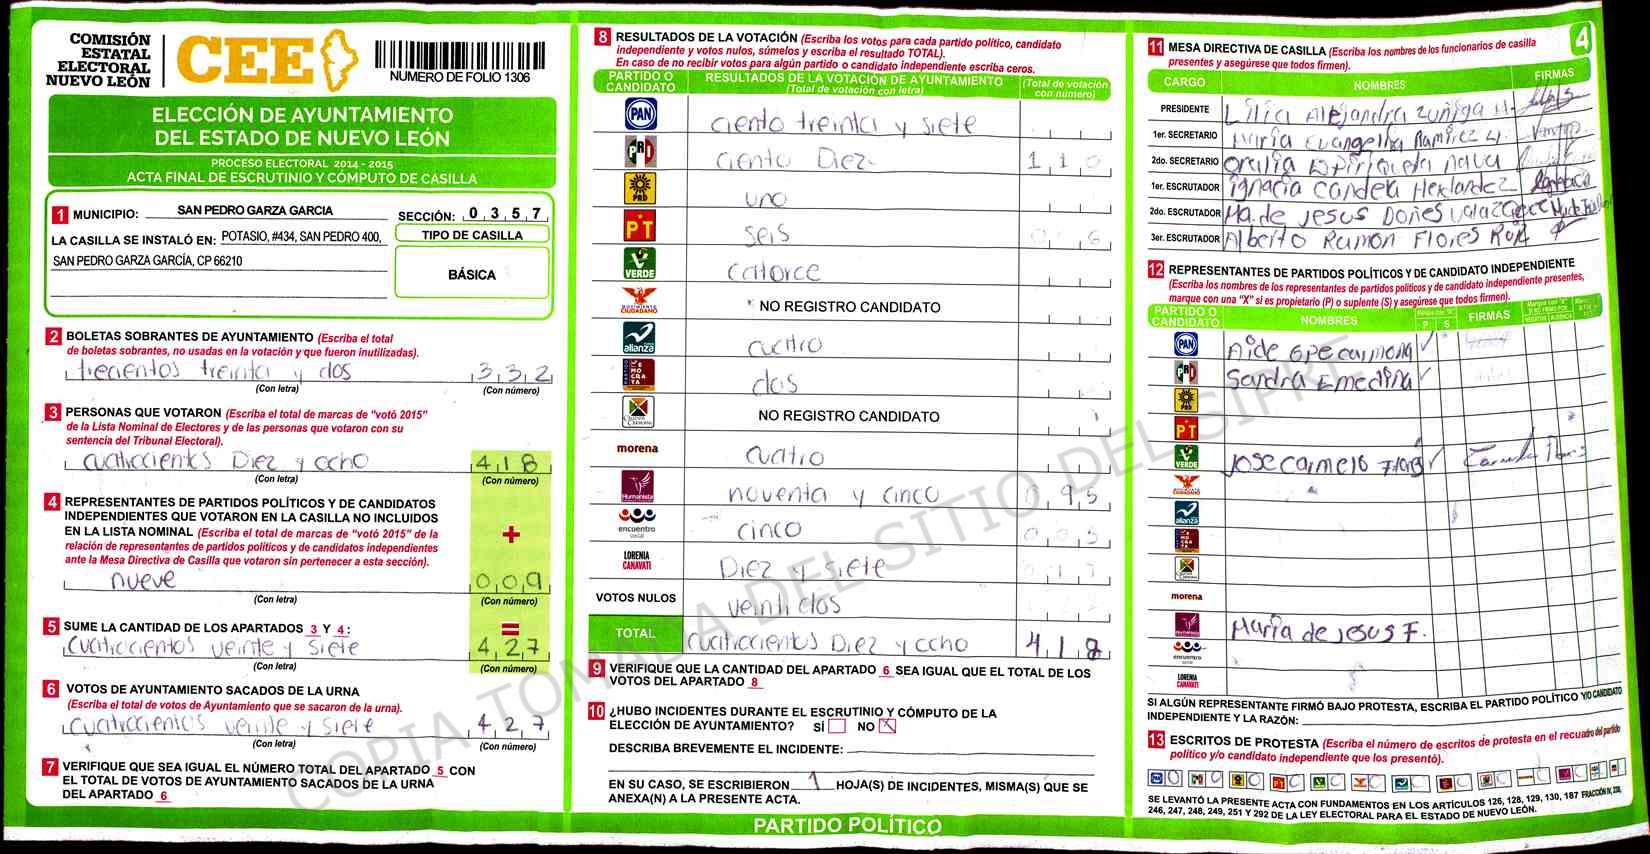 COMISIÓN
ESTATAL
ELECTORAL
NUEVO LEÓN
CEE
NUMERO DE FOLIO 1306
ELECCIÓN DE AYUNTAMIENTO
DEL ESTADO DE NUEVO LEÓN
PROCESO ELECTORAL 2014 - 2015
ACTA FINAL DE ESCRUTINIO Y CÓMPUTO DE CASILLA
1 MUNICIPIO: SAN PEDRO GARZA GARCIA SECCIÓN: 0 3 5 7
LA CASILLA SE INSTALÓ EN: POTASIO, #434, SAN PEDRO 400,
SAN PEDRO GARZA GARCÍA, CP 66210
TIPO DE CASILLA
BÁSICA
2 BOLETAS SOBRANTES DE AYUNTAMIENTO (Escriba el total
de boletas sobrantes, no usadas en la votación y que fueron inutilizadas).
trecientos treinta y dos 3 3 2
(Con letra) (Con número)
3 PERSONAS QUE VOTARON (Escriba el total de marcas de "votó 2015"
de la Lista Nominal de Electores y de las personas que votaron con su
sentencia del Tribunal Electoral).
cuatrocientos Diez y ocho 4 1 8
(Con letra) (Con número)
4 REPRESENTANTES DE PARTIDOS POLÍTICOS Y DE CANDIDATOS
INDEPENDIENTES QUE VOTARON EN LA CASILLA NO INCLUIDOS
EN LA LISTA NOMINAL (Escriba el total de marcas de "votó 2015" de la
relación de representantes de partidos políticos y de candidatos independientes
ante la Mesa Directiva de Casilla que votaron sin pertenecer a esta sección).
+
nueve 0 0 9
(Con letra) (Con número)
5 SUME LA CANTIDAD DE LOS APARTADOS 3 Y 4: =
cuatrocientos veinte y siete 4 2 7
(Con letra) (Con número)
6 VOTOS DE AYUNTAMIENTO SACADOS DE LA URNA
(Escriba el total de votos de Ayuntamiento que se sacaron de la urna).
cuatrocientos veinte y siete 4 2 7
(Con letra) (Con número)
7 VERIFIQUE QUE SEA IGUAL EL NÚMERO TOTAL DEL APARTADO 5 CON
EL TOTAL DE VOTOS DE AYUNTAMIENTO SACADOS DE LA URNA
DEL APARTADO 6
8 RESULTADOS DE LA VOTACIÓN (Escriba los votos para cada partido político, candidato
independiente y votos nulos, súmelos y escriba el resultado TOTAL).
En caso de no recibir votos para algún partido o candidato independiente escriba ceros.
PARTIDO O CANDIDATO RESULTADOS DE LA VOTACIÓN DE AYUNTAMIENTO (Total de votación con letra) (Total de votación con número)
PAN ciento treinta y siete
PRI ciento Diez 1 1 0
PRD uno
PT seis 0 0 6
VERDE catorce
MOVIMIENTO CIUDADANO NO REGISTRO CANDIDATO
alianza cuatro
DEMOCRATA dos
NO REGISTRO CANDIDATO
morena cuatro
Humanista noventa y cinco 0 9 5
encuentro social cinco 0 0 5
LORENIA CANAVATI Diez y siete 0 1 7
VOTOS NULOS veinti dos
TOTAL cuatrocientos Diez y ocho 4 1 8
9 VERIFIQUE QUE LA CANTIDAD DEL APARTADO 6 SEA IGUAL QUE EL TOTAL DE LOS
VOTOS DEL APARTADO 8
10 ¿HUBO INCIDENTES DURANTE EL ESCRUTINIO Y CÓMPUTO DE LA
ELECCIÓN DE AYUNTAMIENTO? SÍ NO X
DESCRIBA BREVEMENTE EL INCIDENTE:
EN SU CASO, SE ESCRIBIERON 1 HOJA(S) DE INCIDENTES, MISMA(S) QUE SE
ANEXA(N) A LA PRESENTE ACTA.
PARTIDO POLÍTICO
4
11 MESA DIRECTIVA DE CASILLA (Escriba los nombres de los funcionarios de casilla
presentes y asegúrese que todos firmen).
CARGO NOMBRES FIRMAS
PRESIDENTE Lilia Alejandra Zuñiga H.
1er. SECRETARIO Maria Evangelina Ramirez
2do. SECRETARIO Oralia Nava
1er. ESCRUTADOR Ignacia Candela Hernandez
2do. ESCRUTADOR Ma. de Jesus
3er. ESCRUTADOR Alberto Ramon Flores
12 REPRESENTANTES DE PARTIDOS POLÍTICOS Y DE CANDIDATO INDEPENDIENTE
(Escriba los nombres de los representantes de partidos políticos y de candidato independiente presentes,
marque con una "X" si es propietario (P) o suplente (S) y asegúrese que todos firmen).
PARTIDO O CANDIDATO NOMBRES P S FIRMAS
PAN Aide Gpe carmona
PRI Sandra E medina
PRD
PT
VERDE Jose carmelo Flores
alianza
morena
Maria de Jesus F.
encuentro social
LORENIA CANAVATI
SI ALGÚN REPRESENTANTE FIRMÓ BAJO PROTESTA, ESCRIBA EL PARTIDO POLÍTICO Y/O CANDIDATO
INDEPENDIENTE Y LA RAZÓN:
13 ESCRITOS DE PROTESTA (Escriba el número de escritos de protesta en el recuadro del partido
político y/o candidato independiente que los presentó).
SE LEVANTÓ LA PRESENTE ACTA CON FUNDAMENTOS EN LOS ARTÍCULOS 126, 128, 129, 130, 187 FRACCIÓN IV, 238,
246, 247, 248, 249, 251 Y 292 DE LA LEY ELECTORAL PARA EL ESTADO DE NUEVO LEÓN.
COPIA TOMADA DEL SITIO DEL SIPRE